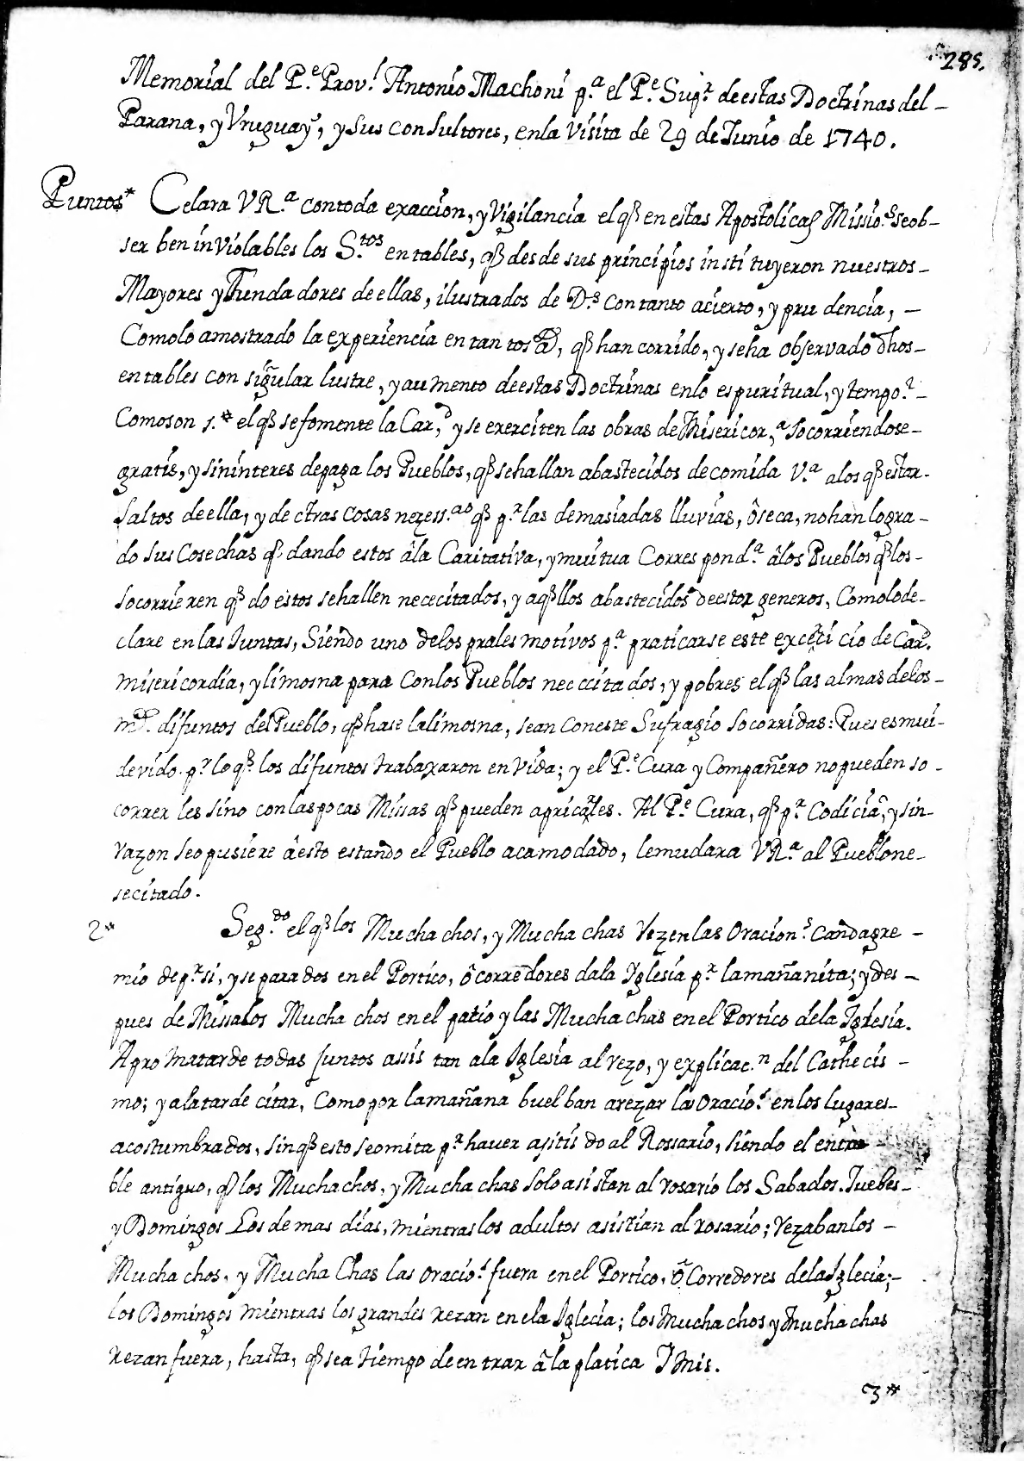 285.
Memorial del P.e Prov.l Antonio Machoni p.a el P.e Sup.r de estas Doctrinas del-
Parana, y Vruguay, y sus consultores, enla Visita de 29 de Junio de 1740.
Puntos* Celara VR.a contoda exaccion, y Vigilancia el q̃ en estas Apostolicas Missio.s seob-
ser ben inViolables los S.tos en tables, q̃ desde sus principios insti tuyeron nuestros-
Mayores y Funda dores de ellas, ilustrados de D.s con tanto acierto, y pru dencia, -
Como lo amostrado la experiencia en tan tos a.s, q̃ han corrido, y seha observado dhos-
en tables con singular lustre, y aumento deestas Doctrinas enlo espuritual, y tempo.l-
Como son 1.* el q̃ se fomente la Car,d y se exerciten las obras de Misericor,a socorriendose-
gratis, y sin interes depaga los Pueblos, q̃ sehallan abastecidos de comida V.a alos q̃ estar-
faltos de ella, y de otras cosas nezess.as q̃ p.r las demasiadas lluvias, ô seca, no han logra-
do sus Cosechas q̃ dando estos âla Caritativa, y muitua Correspond.a âlos Pueblos q̃ los-
socorrieren q̃ do estos sehallen nececitados, y aq̃llos abastecidos deestos generos, Comolode-
clare en las Juntas, Siendo uno delos prales motivos p.a praticarse este exerci cio de Card.
misericordia, y limosna para Conlos Pueblos nec ccita dos, y pobres el q̃ las almas delos-
m.s difuntos del Pueblo, q̃ hase lalimosna, sean con este Sufragio socorridas: Pues es mui-
devido. p.r lo q̃ los difuntos trabaxaron en Vida; y el P.e Cura y Compañero no pueden so-
correr les sino con laspocas Missas q̃ pueden apricarles. Al P.e Cura, q̃ p.a Codicia, y sin-
razon seopusiere â esto estando el Pueblo acamodado, lemudara VR.a al Pueblo ne-
secitado.
2* Seg.do el q̃ los Mucha chos, y Mucha chas Rezen las oracion.s Cada gre-
mio de p.r si, y separa dos en el Portico, ô corredores dala Iglesia p.r lamañanita; y des-
pues de Missalos Mucha chos en el patio y las Mucha chas en el Portico dela Iglesia.
Apro Matarde todas juntos assis tan ala Iglesia al rezo, y explicac.n del Cathecis-
mo; y alatarde citar, Como por lamañana buel ban arezar las oracio.s en los lugares-
acostumbrados, sin q̃ esto se omita p.r haver asisti do al Rossario, siendo el enta-
ble antiguo, q̃ los Muchachos, y Mucha chas solo asistan al rosario los Sabados. Juebes-
y Domingos Los de mas dias, mientras los adultos asistian al rosario; Rezaban los-
Mucha chos, y Mucha Chas las oracio.s fuera en el Portico, ô Corredores dela Iglecia;-
los Domingos mientras los grandes rezan en ela Iglecia; los Mucha chos y Mucha chas
rezan fuera, hasta, q̃ sea tiempo de en trar â la platica J Mis.
3*